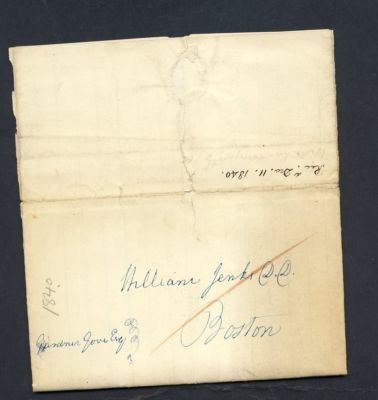 Rec.d Dec. 11. 1840.
William Jenks D.D.
Boston
Gardner Gove Esq
1840.